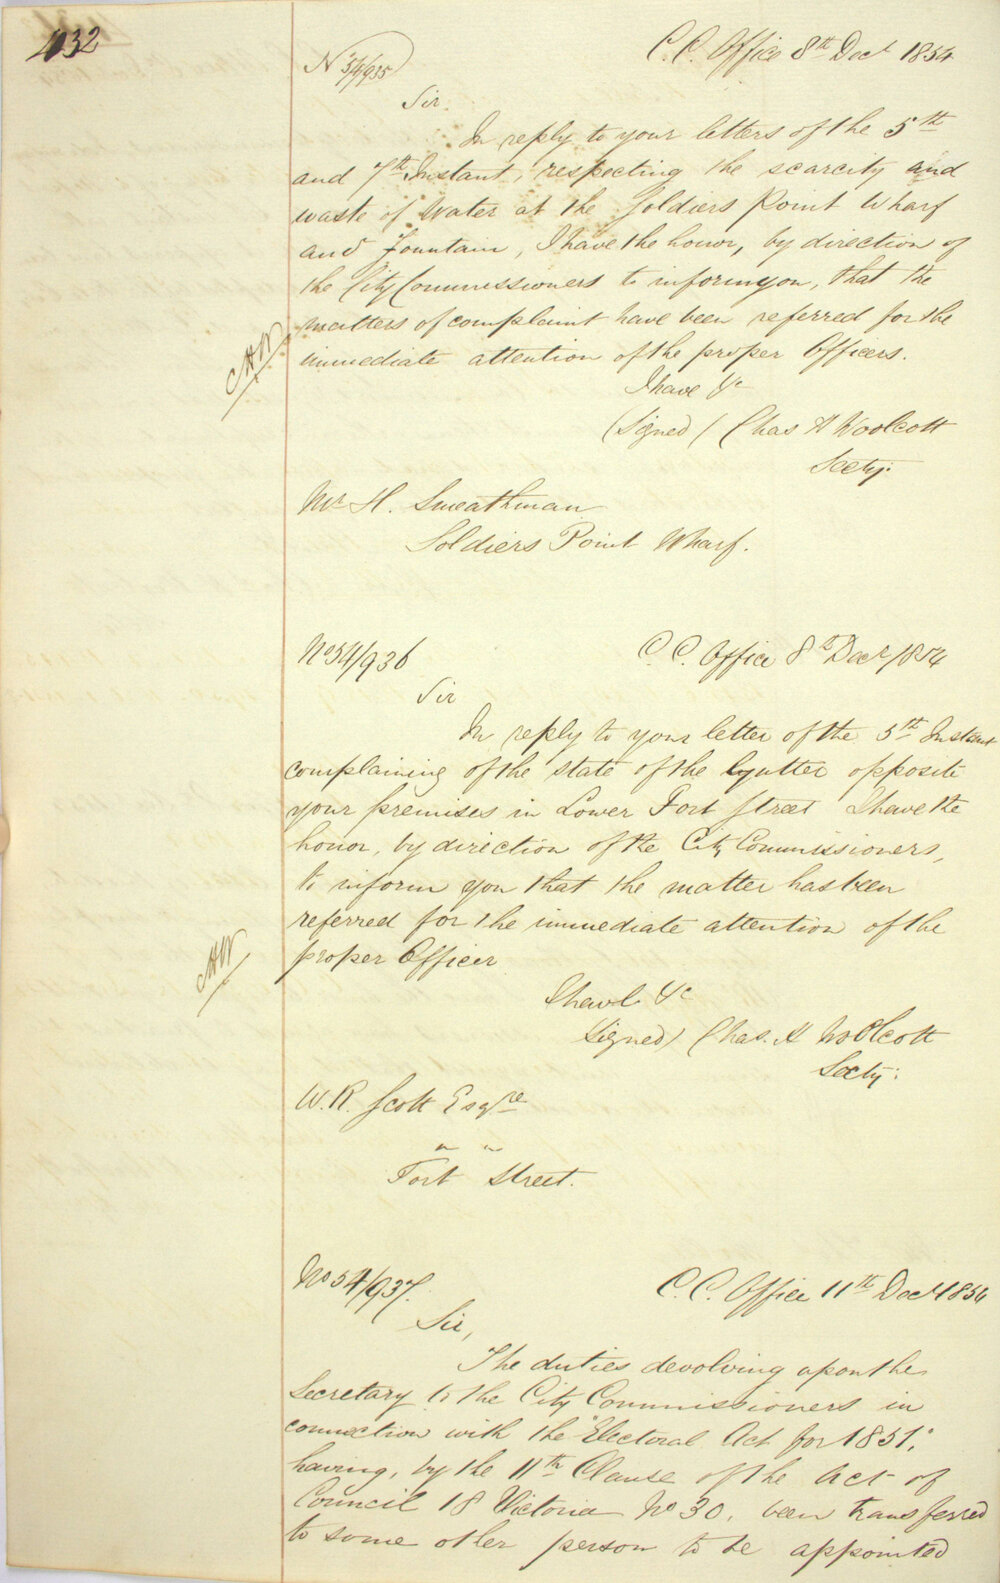 432
No 54/935
C. C. Office 8th Decr 1854
Sir
In reply to your letters of the 5th
and 7th Instant, respecting the scarcity and
waste of Water at the Soldiers Point Wharf
and Fountain, I have the honor, by direction of
the City Commissioners to inform you, that the
matters of complaint have been referred for the
immediate attention of the proper Officers.
CHW
I have &c
(Signed) Chas H Woolcott
Secty.
Mr H. Smeathman
Soldiers Point Wharf.
No 54/936
C. C. Office 8th Decr 1854
Sir
In reply to your letter of the 5th Instant
complaining of the state of the Gutter opposite
your premises in Lower Fort Street I have the
honor, by direction of the City Commissioners,
to inform you that the matter has been
referred for the immediate attention of the
proper Officer
CHW
I have &c
Signed) Chas. H Woolcott
Secty.
W. R. Scott Esqre
" "
Fort Street.
No 54/937.
C. C. Office 11th Decr 1854
Sir,
The duties devolving upon the
Secretary to the City Commissioners in
connection with the "Electoral Act for 1851,"
having, by the 11th Clause of the Act of
Council 18 Victoria No 30, been transferred
to some other person to be appointed